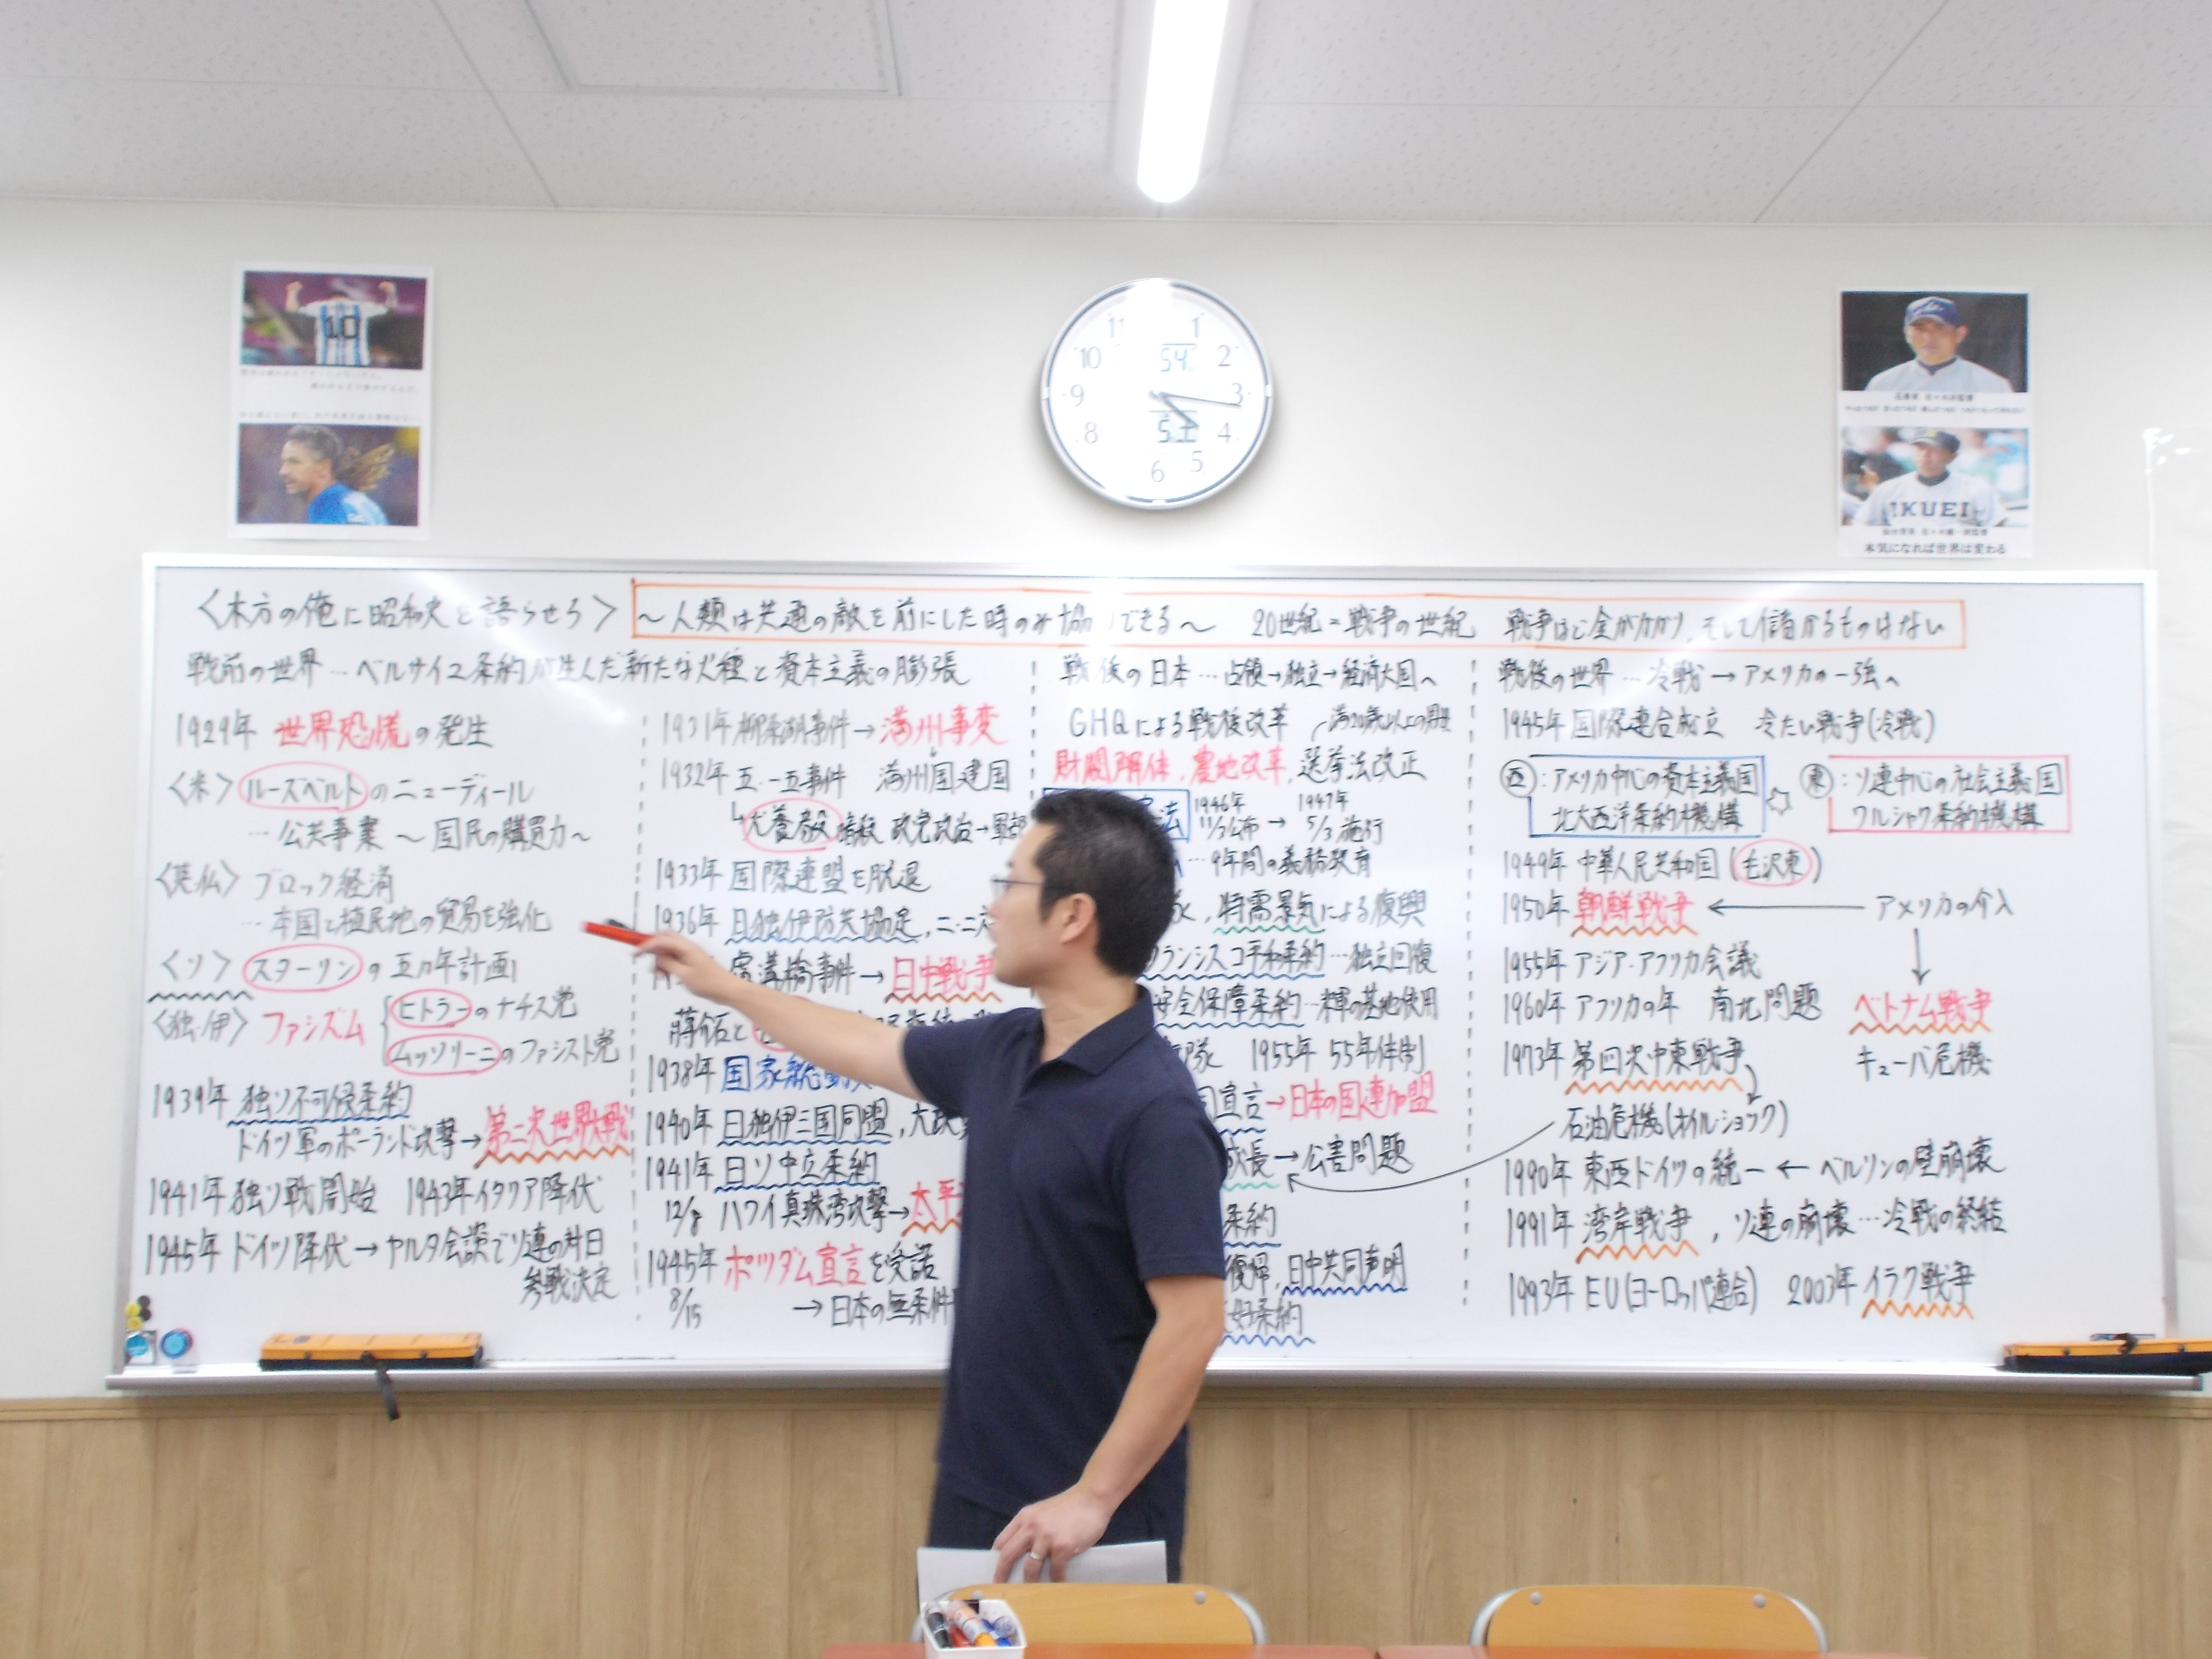 10
11
1
10
2
9
3
8
4
6
5
54
IKUEI
本気になれば世界は変わる
〈木方の俺に昭和史を語らせろ〉
～人類は共通の敵を前にした時のみ協 できる～ 20世紀=戦争の世紀 戦争ほど金がかかり、そして儲かるものはない
戦前の世界…ベルサイユ条約が生んだ新たな火種と資本主義の膨張
1929年 世界恐慌の発生
〈米〉ルーズベルトのニューディール
…公共事業 ～国民の購買力～
〈英仏〉ブロック経済
…本国と植民地の貿易を強化
〈ソ〉スターリンの五カ年計画
〈独・伊〉ファシズム
ヒトラーのナチス党
ムッソリーニのファシスト党
1939年 独ソ不可侵条約
ドイツ軍のポーランド攻撃→第二次世界大戦
1941年 独ソ戦開始 1943年イタリア降伏
1945年 ドイツ降伏→ヤルタ会談でソ連の対日
参戦決定
1931年 柳条湖事件→満州事変
1932年 五・一五事件 満州国建国
犬養毅暗殺 政党政治→軍部
1933年 国際連盟を脱退
1936年 日独伊防共協定,二・二
盧溝橋事件→日中戦争
蒋介石と
1938年 国家総動
1940年 日独伊三国同盟,大政
1941年 日ソ中立条約
12/8 ハワイ真珠湾攻撃→太平
1945年 ポツダム宣言を受諾
8/15 →日本の無条件
戦後の日本…占領→独立→経済大国へ
GHQによる戦後改革 満20歳以上の男女
財閥解体,農地改革,選挙法改正
法 1946年 11/3公布 → 1947年 5/3施行
…9年間の義務教育
,特需景気による復興
ランシスコ平和条約…独立回復
安全保障条約…米軍の基地使用
隊 1955年 55年体制
宣言→日本の国連加盟
成長→公害問題
条約
復帰,日中共同声明
好条約
戦後の世界…冷戦→アメリカの一強へ
1945年 国際連合成立 冷たい戦争(冷戦)
西:アメリカ中心の資本主義国
北大西洋条約機構
東:ソ連中心の社会主義国
ワルシャワ条約機構
1949年 中華人民共和国(毛沢東)
1950年 朝鮮戦争 ← アメリカの介入
1955年 アジア・アフリカ会議
1960年 アフリカの年 南北問題 ベトナム戦争
1973年 第四次中東戦争 キューバ危機
石油危機(オイルショック)
1990年 東西ドイツの統一←ベルリンの壁崩壊
1991年 湾岸戦争,ソ連の崩壊…冷戦の終結
1993年 EU(ヨーロッパ連合) 2003年イラク戦争